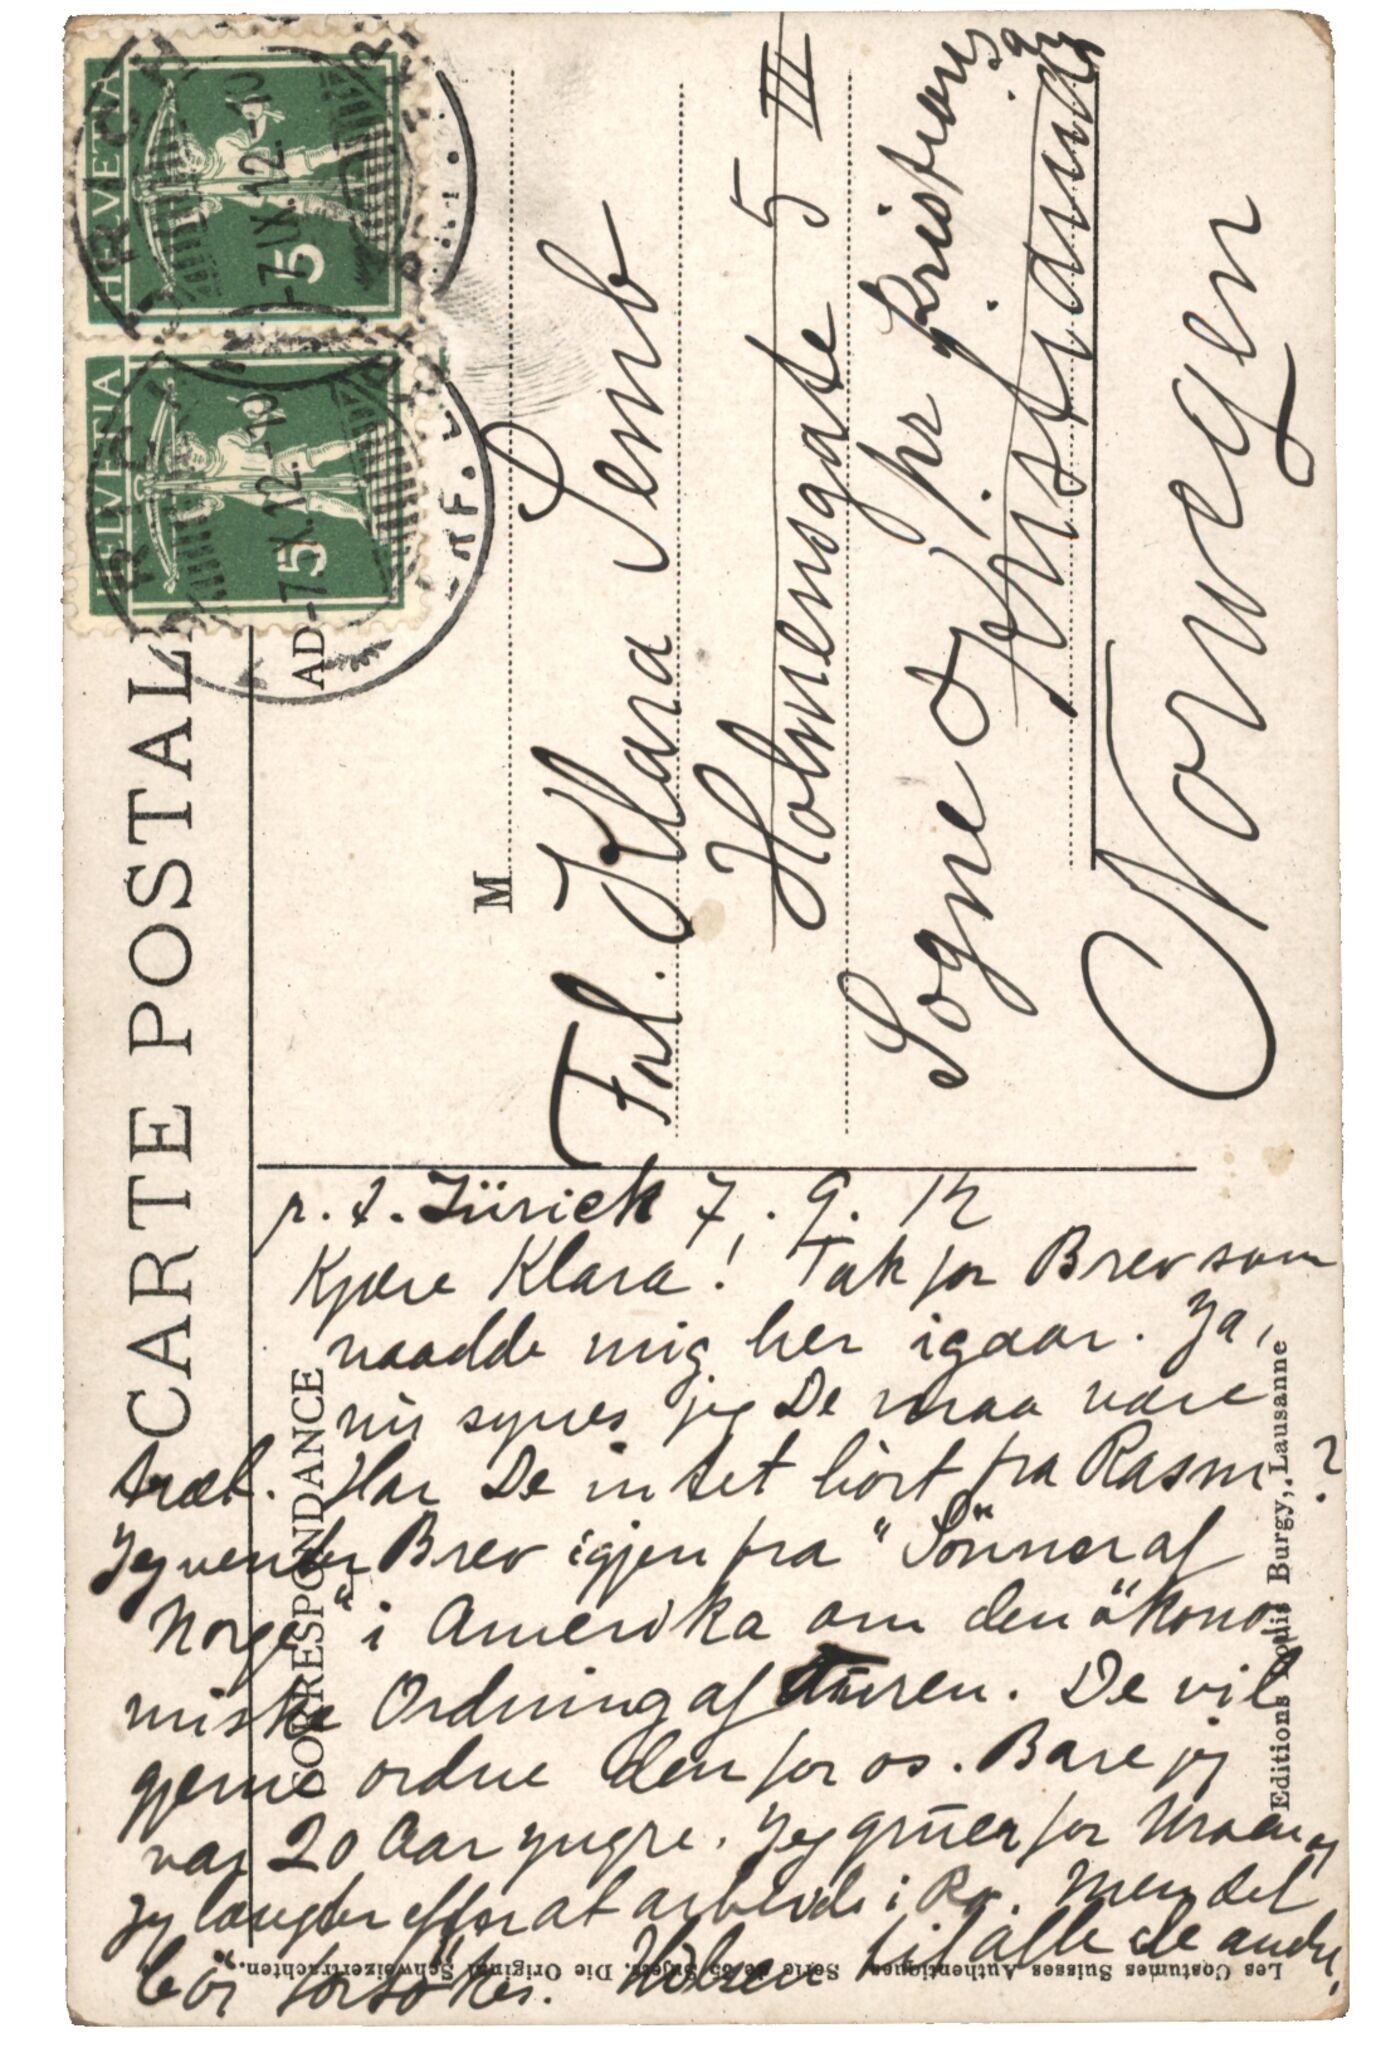 CARTE POSTALE
CORRESPONDANCE
AD
HELVETIA
5
HELVETIA
5
-7.IX.12.-10
-7.IX.12.-10
M
Frl. Klara Semb
Holmensgate 5 III
Sogne pr Kristians
Kristiania
Norwegen
p. t. Zürich 7. 9. 12
Kjære Klara! Tak for Brev som
naadde mig her igaar. Ja,
nu synes jeg De maa være
træt. Har De intet hört fra Rasm?
Jeg venter Brev igjen fra "Sönner af
Norge" i Amerika om den ökono
miske Ordning af Turen. De vil
gjerne ordne den for os. Bare jeg
var 20 Aar yngre. Jeg gruer for
Jeg længter efter at arbeide i Men det
bör forsökes. Hilsen til alle de andre.
Editions Louis Burgy, Lausanne
Les Costumes Suisses Authentiques. Série de 35 Sujets. Die Original Schweizertrachten.